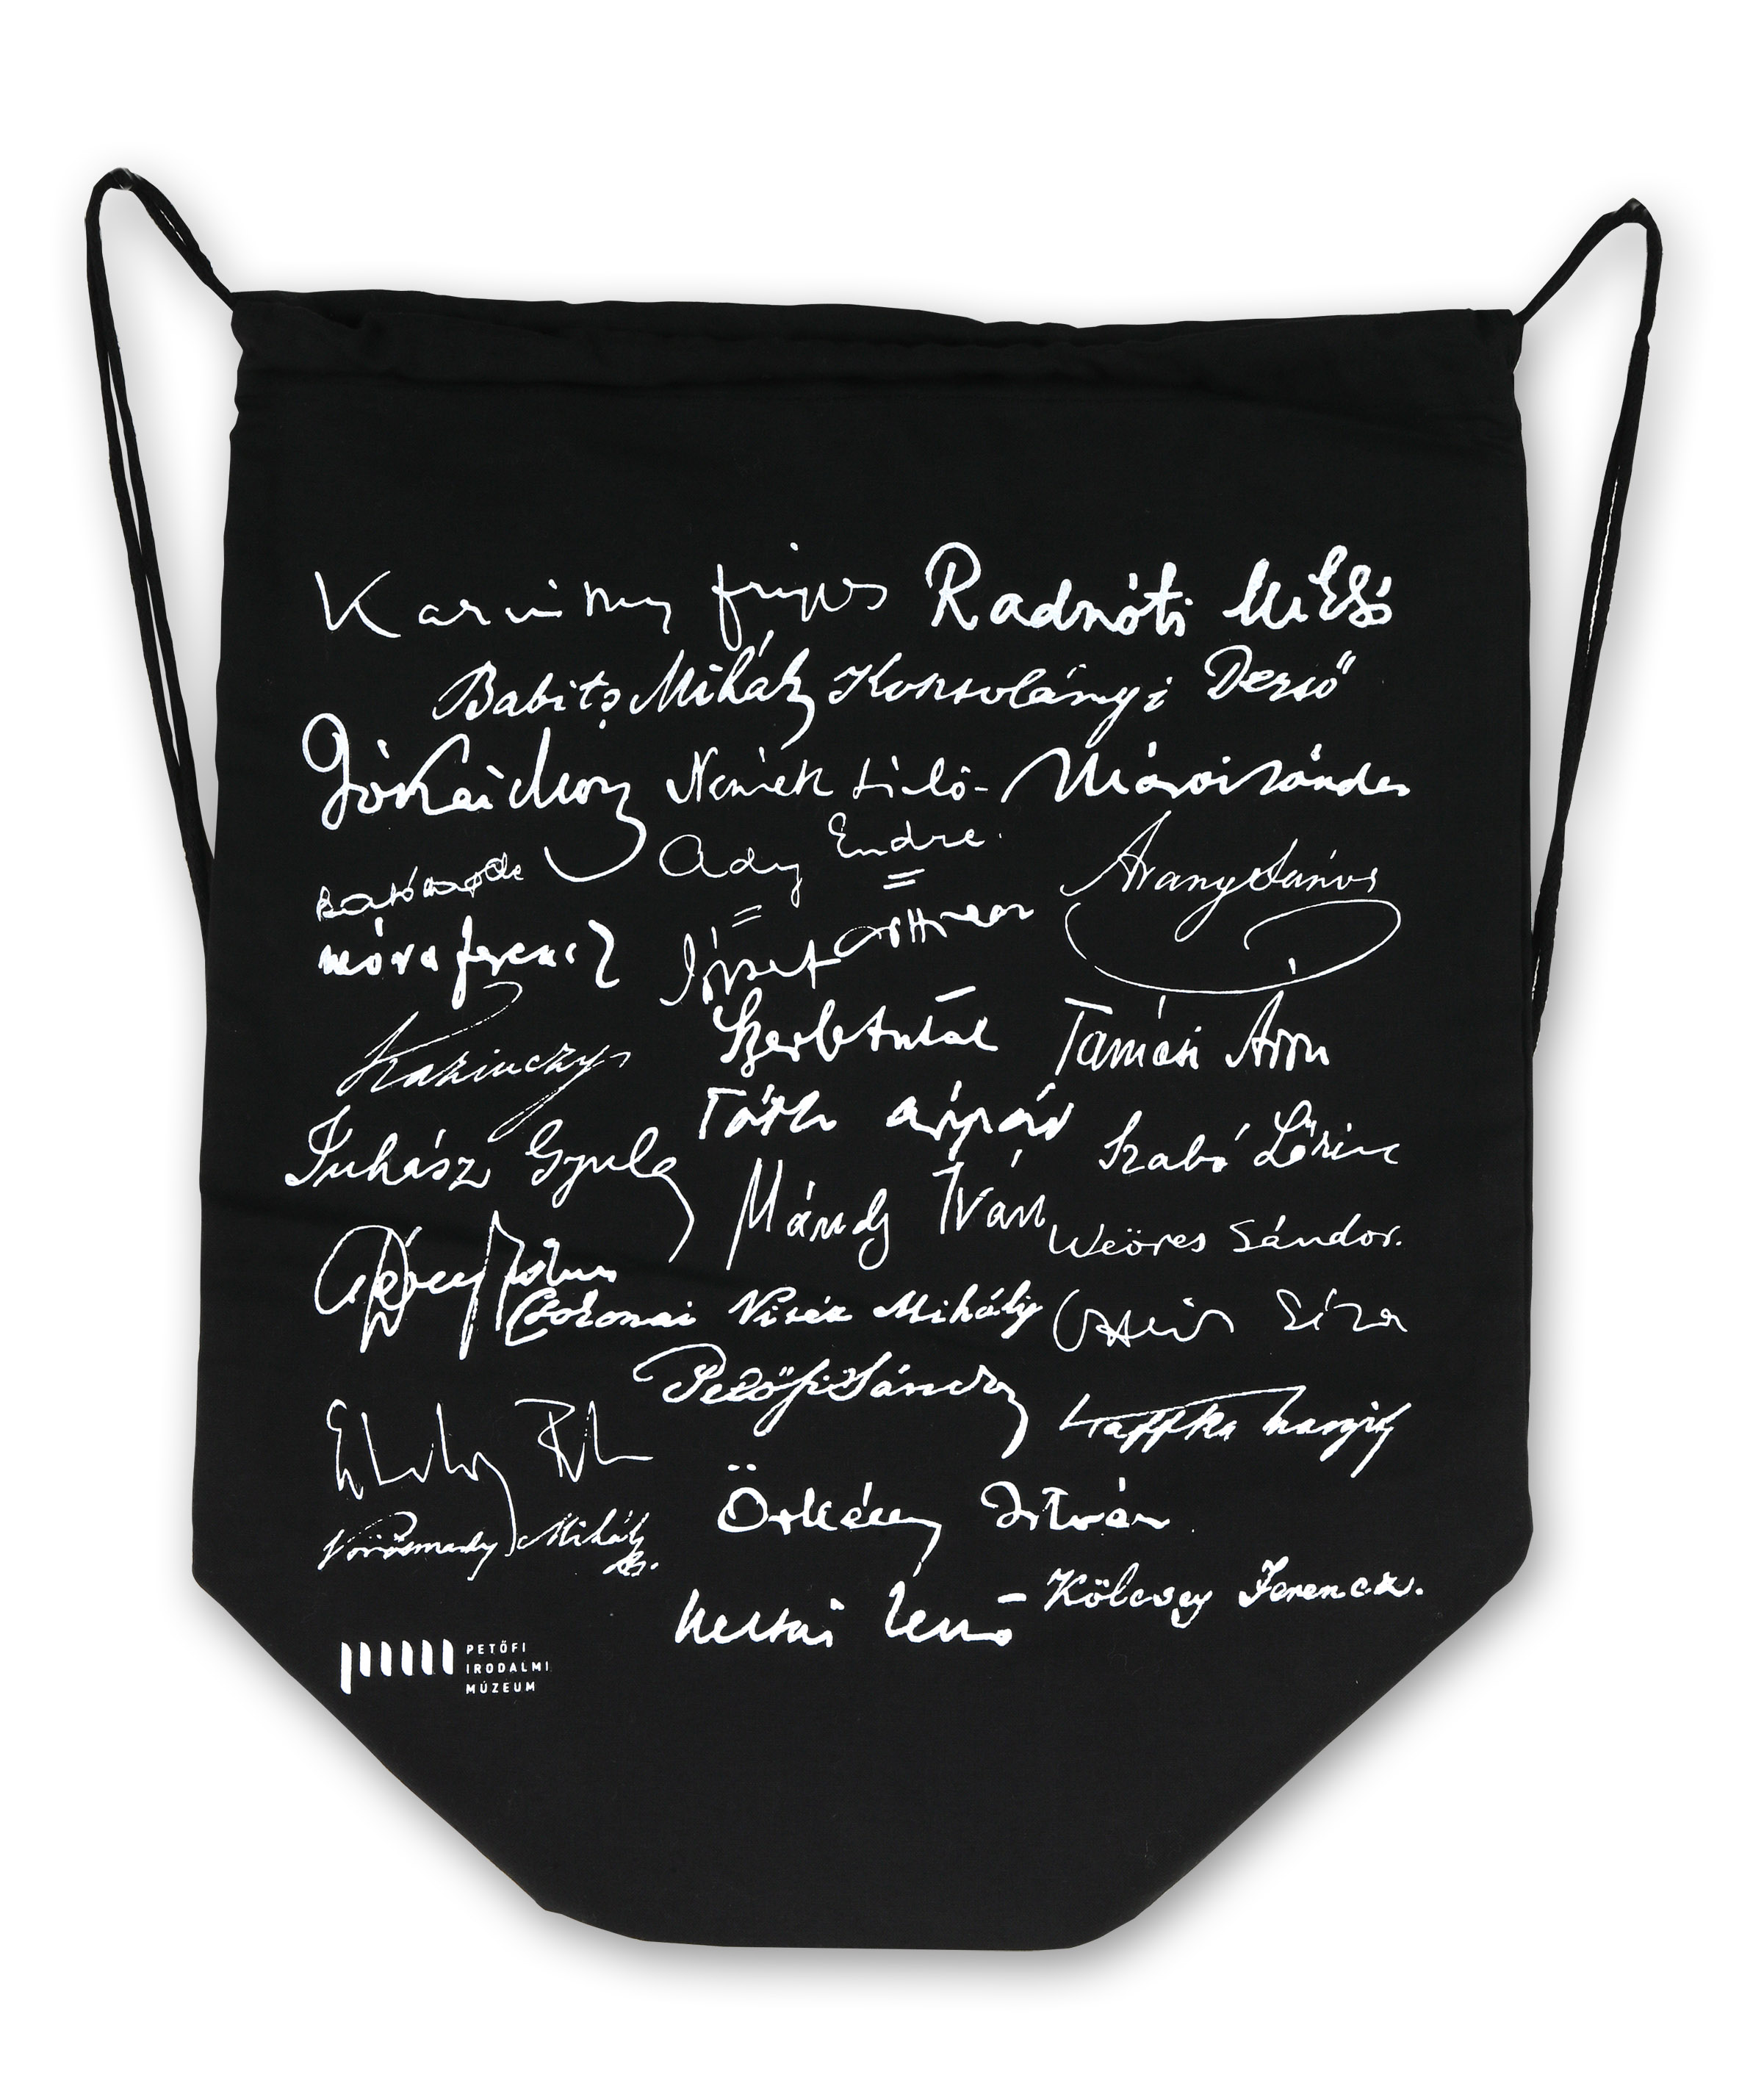 Karinthy Frigyes Radnóti Miklós
Babits Mihály Kosztolányi Dezső
Jókai Mór Németh László Márai Sándor
Ady Endre. Arany János
móra ferenc József Attila
Kazinczy Szerb Antal Tamási Áron
Juhász Gyula Tóth Árpád Szabó Lőrinc
Mándy Iván Weöres Sándor.
Csokonai Vitéz Mihály
Petőfi Sándor Kaffka Margit
Vörösmarty Mihály Örkény István
Heltai Jenő Kölcsey Ferencz.
PETŐFI
IRODALMI
MÚZEUM